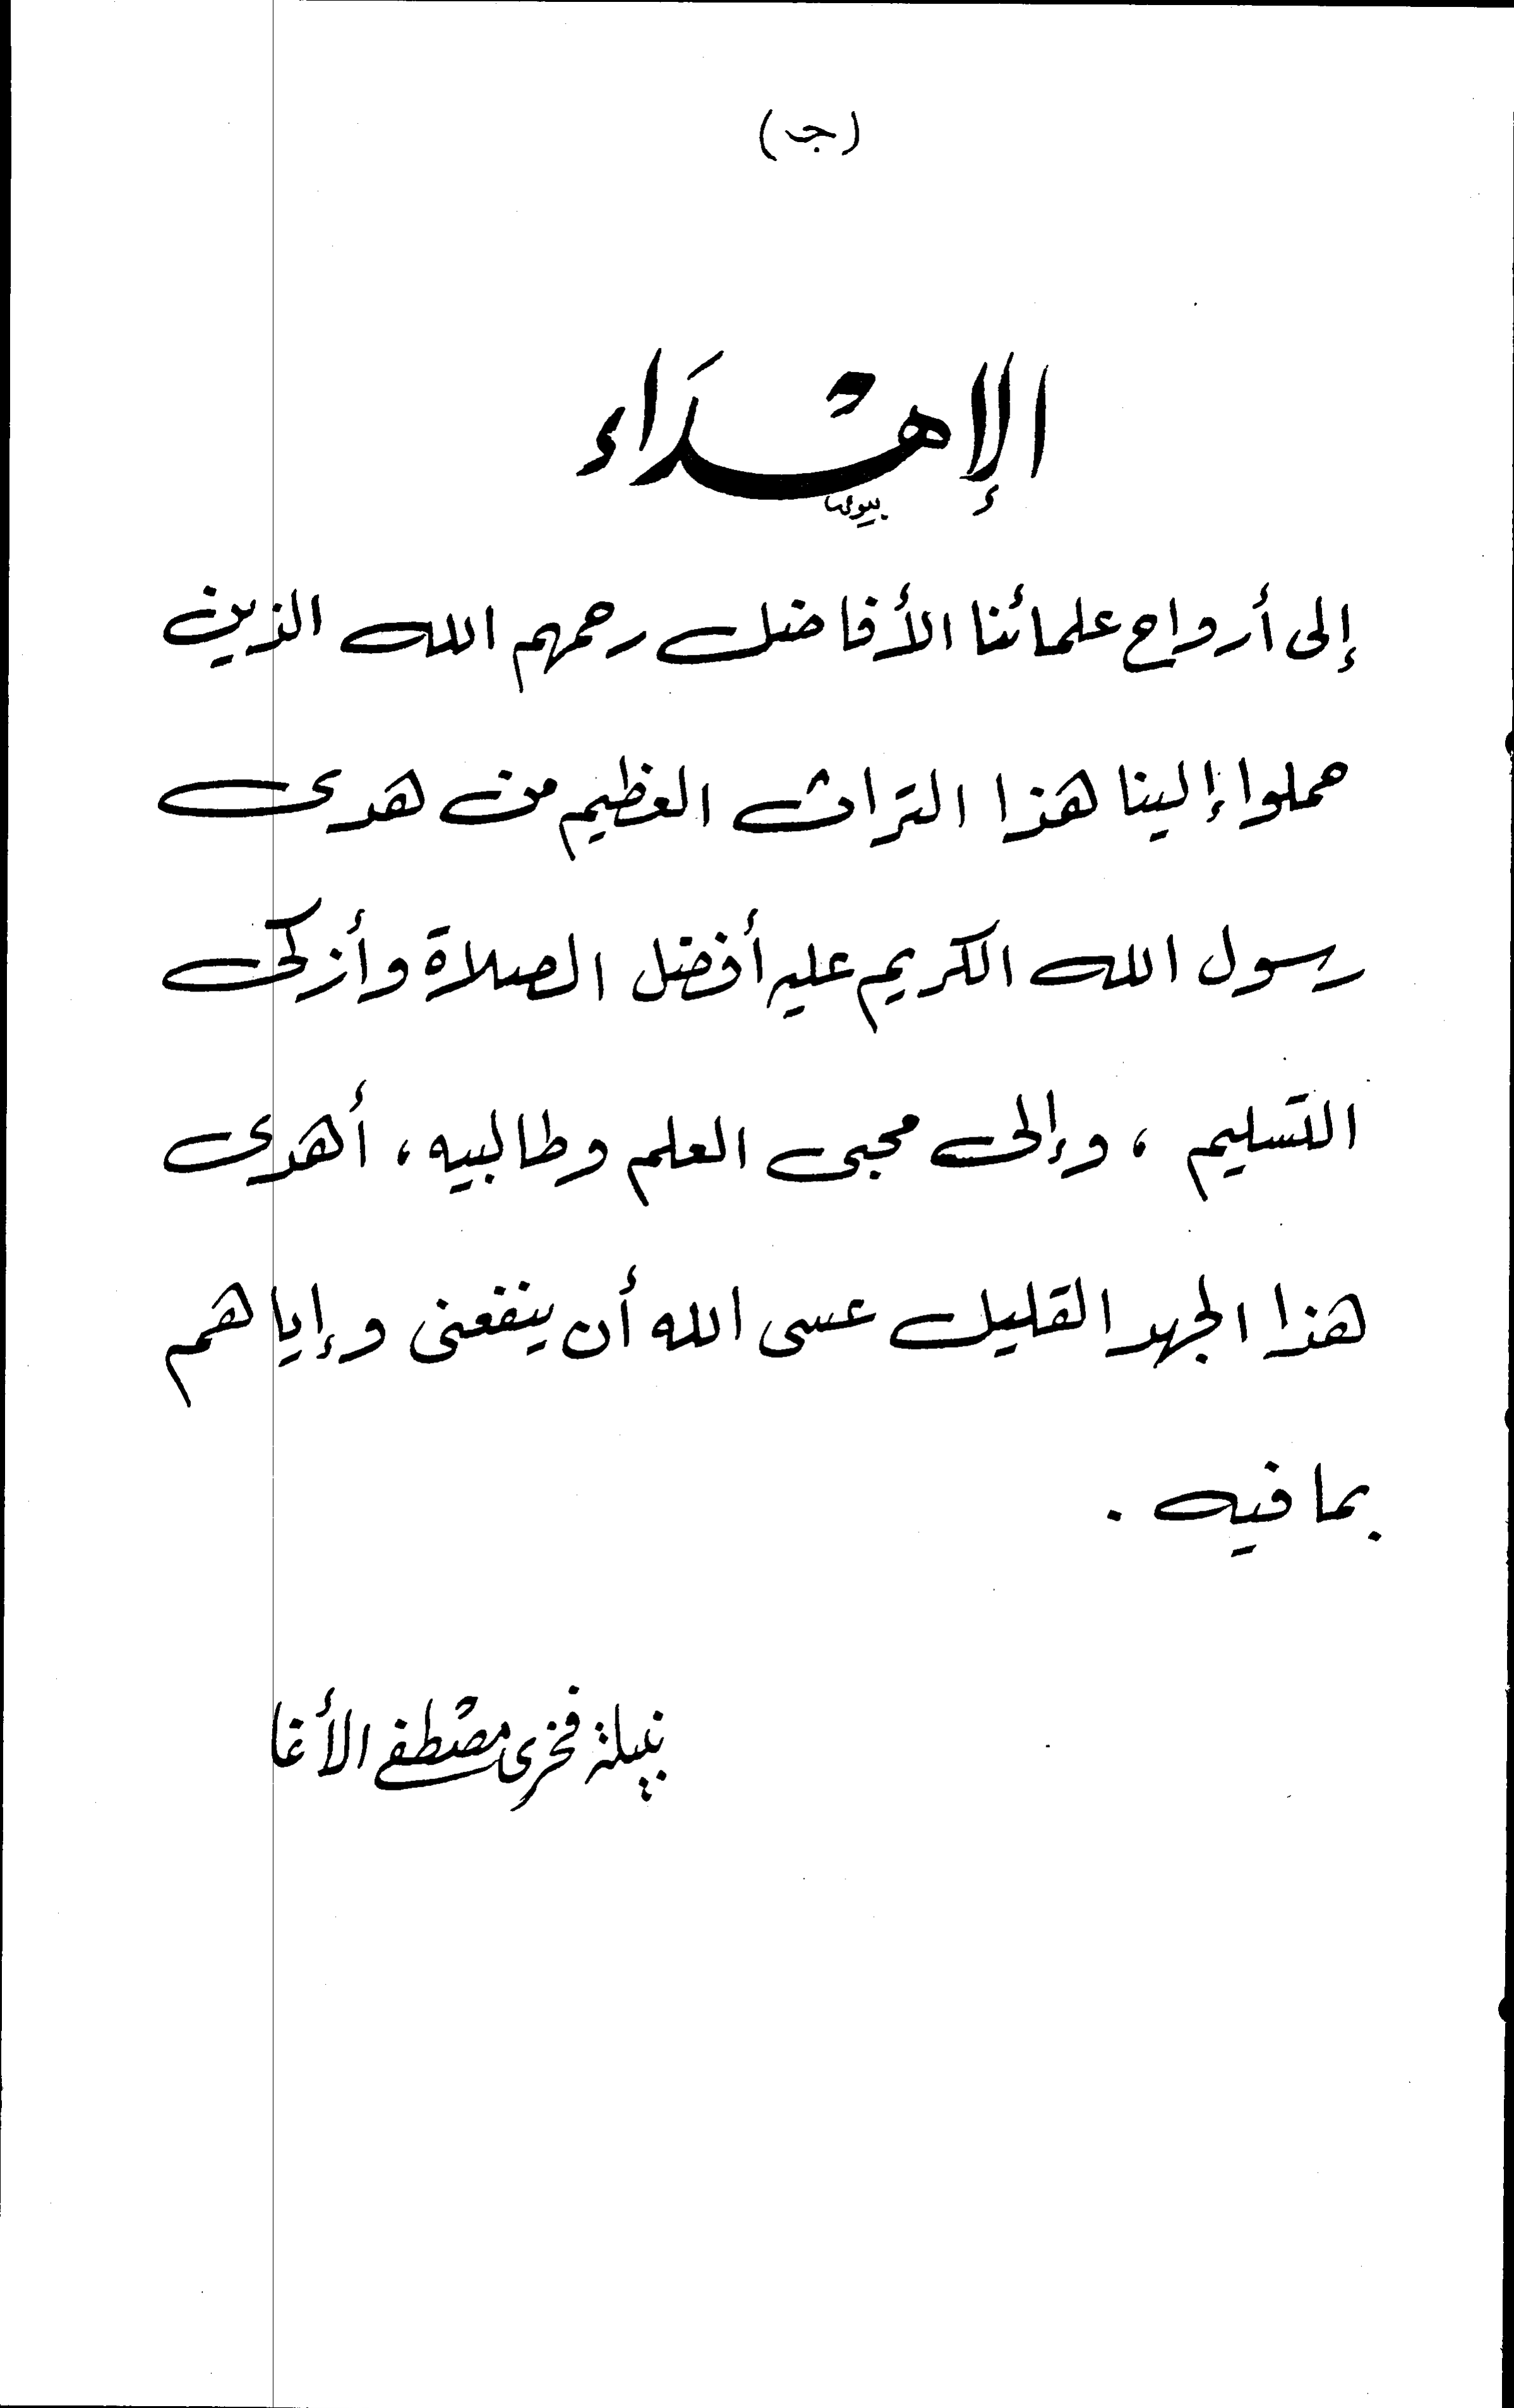 (جـ)
الإهداء
إلى أرواح علمائنا الأفاضل رحمهم الله الذين
حملوا إلينا هذا التراث العظيم من هدى
رسول الله الكريم عليه أفضل الصلاة وأزكى
التسليم ، وإلى محبى العلم وطالبيه ، أهدى
هذا الجهد القليل عسى الله أن ينفعنى وإياهم
بما فيه .
نبيلة فخرى مصطفى الأغا